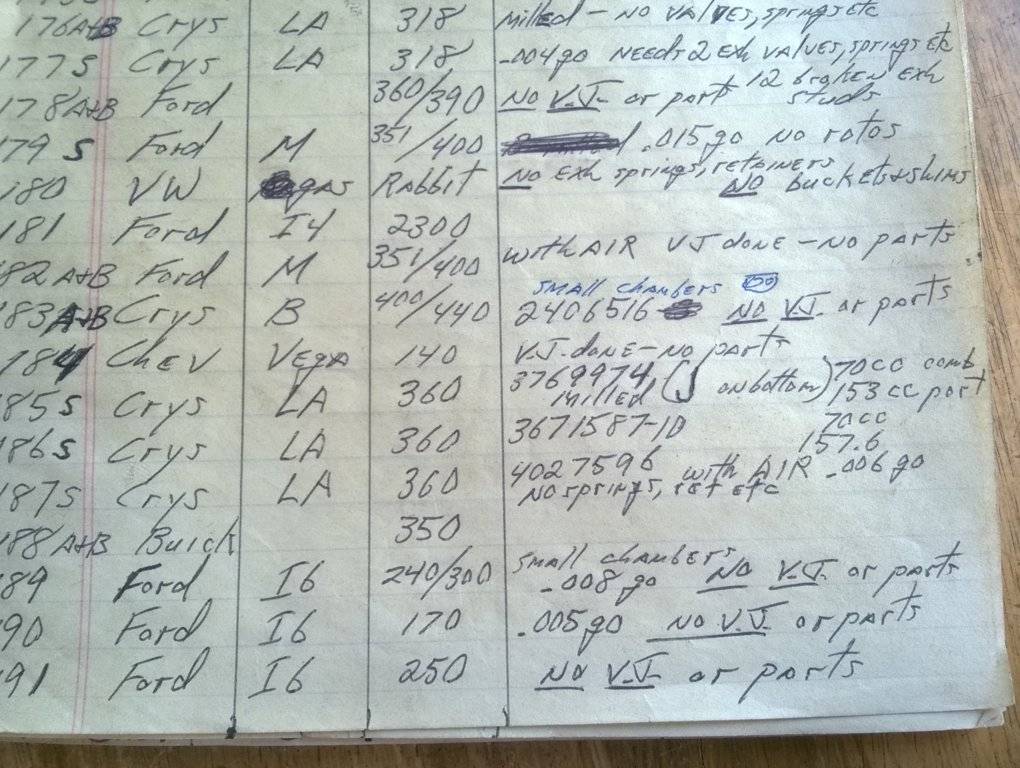 176A+B Crys LA 318 Milled - No valves, springs etc
177 S Crys LA 318 .004 go Needs 2 exh valves, springs etc
12 broken exh studs
178 A+B Ford 360/390 No V.J. or parts
179 S Ford M 351/400 .015 go no rotos
180 VW gas Rabbit No exh springs, retainers
No buckets + shims
181 Ford I4 2300
with AIR V.J. done - No parts
82 A+B Ford M 351/400
small chambers
83 A+B Crys B 400/440 2406516 No V.J. or parts
184 Chev Vega 140 V.J. done - no parts
3769974 70cc comb
85 S Crys LA 360 Milled ( on bottom) 153 cc port
186 S Crys LA 360 3671587-1D 70cc
157.6
187 S Crys LA 360 4027596 with AIR .006 go
No springs, ret etc
188 A+B Buick 350
small chambers
89 Ford I6 240/300 .008 go No V.J. or parts
90 Ford I6 170 .005 go No V.J. or parts
91 Ford I6 250 No V.J. or parts